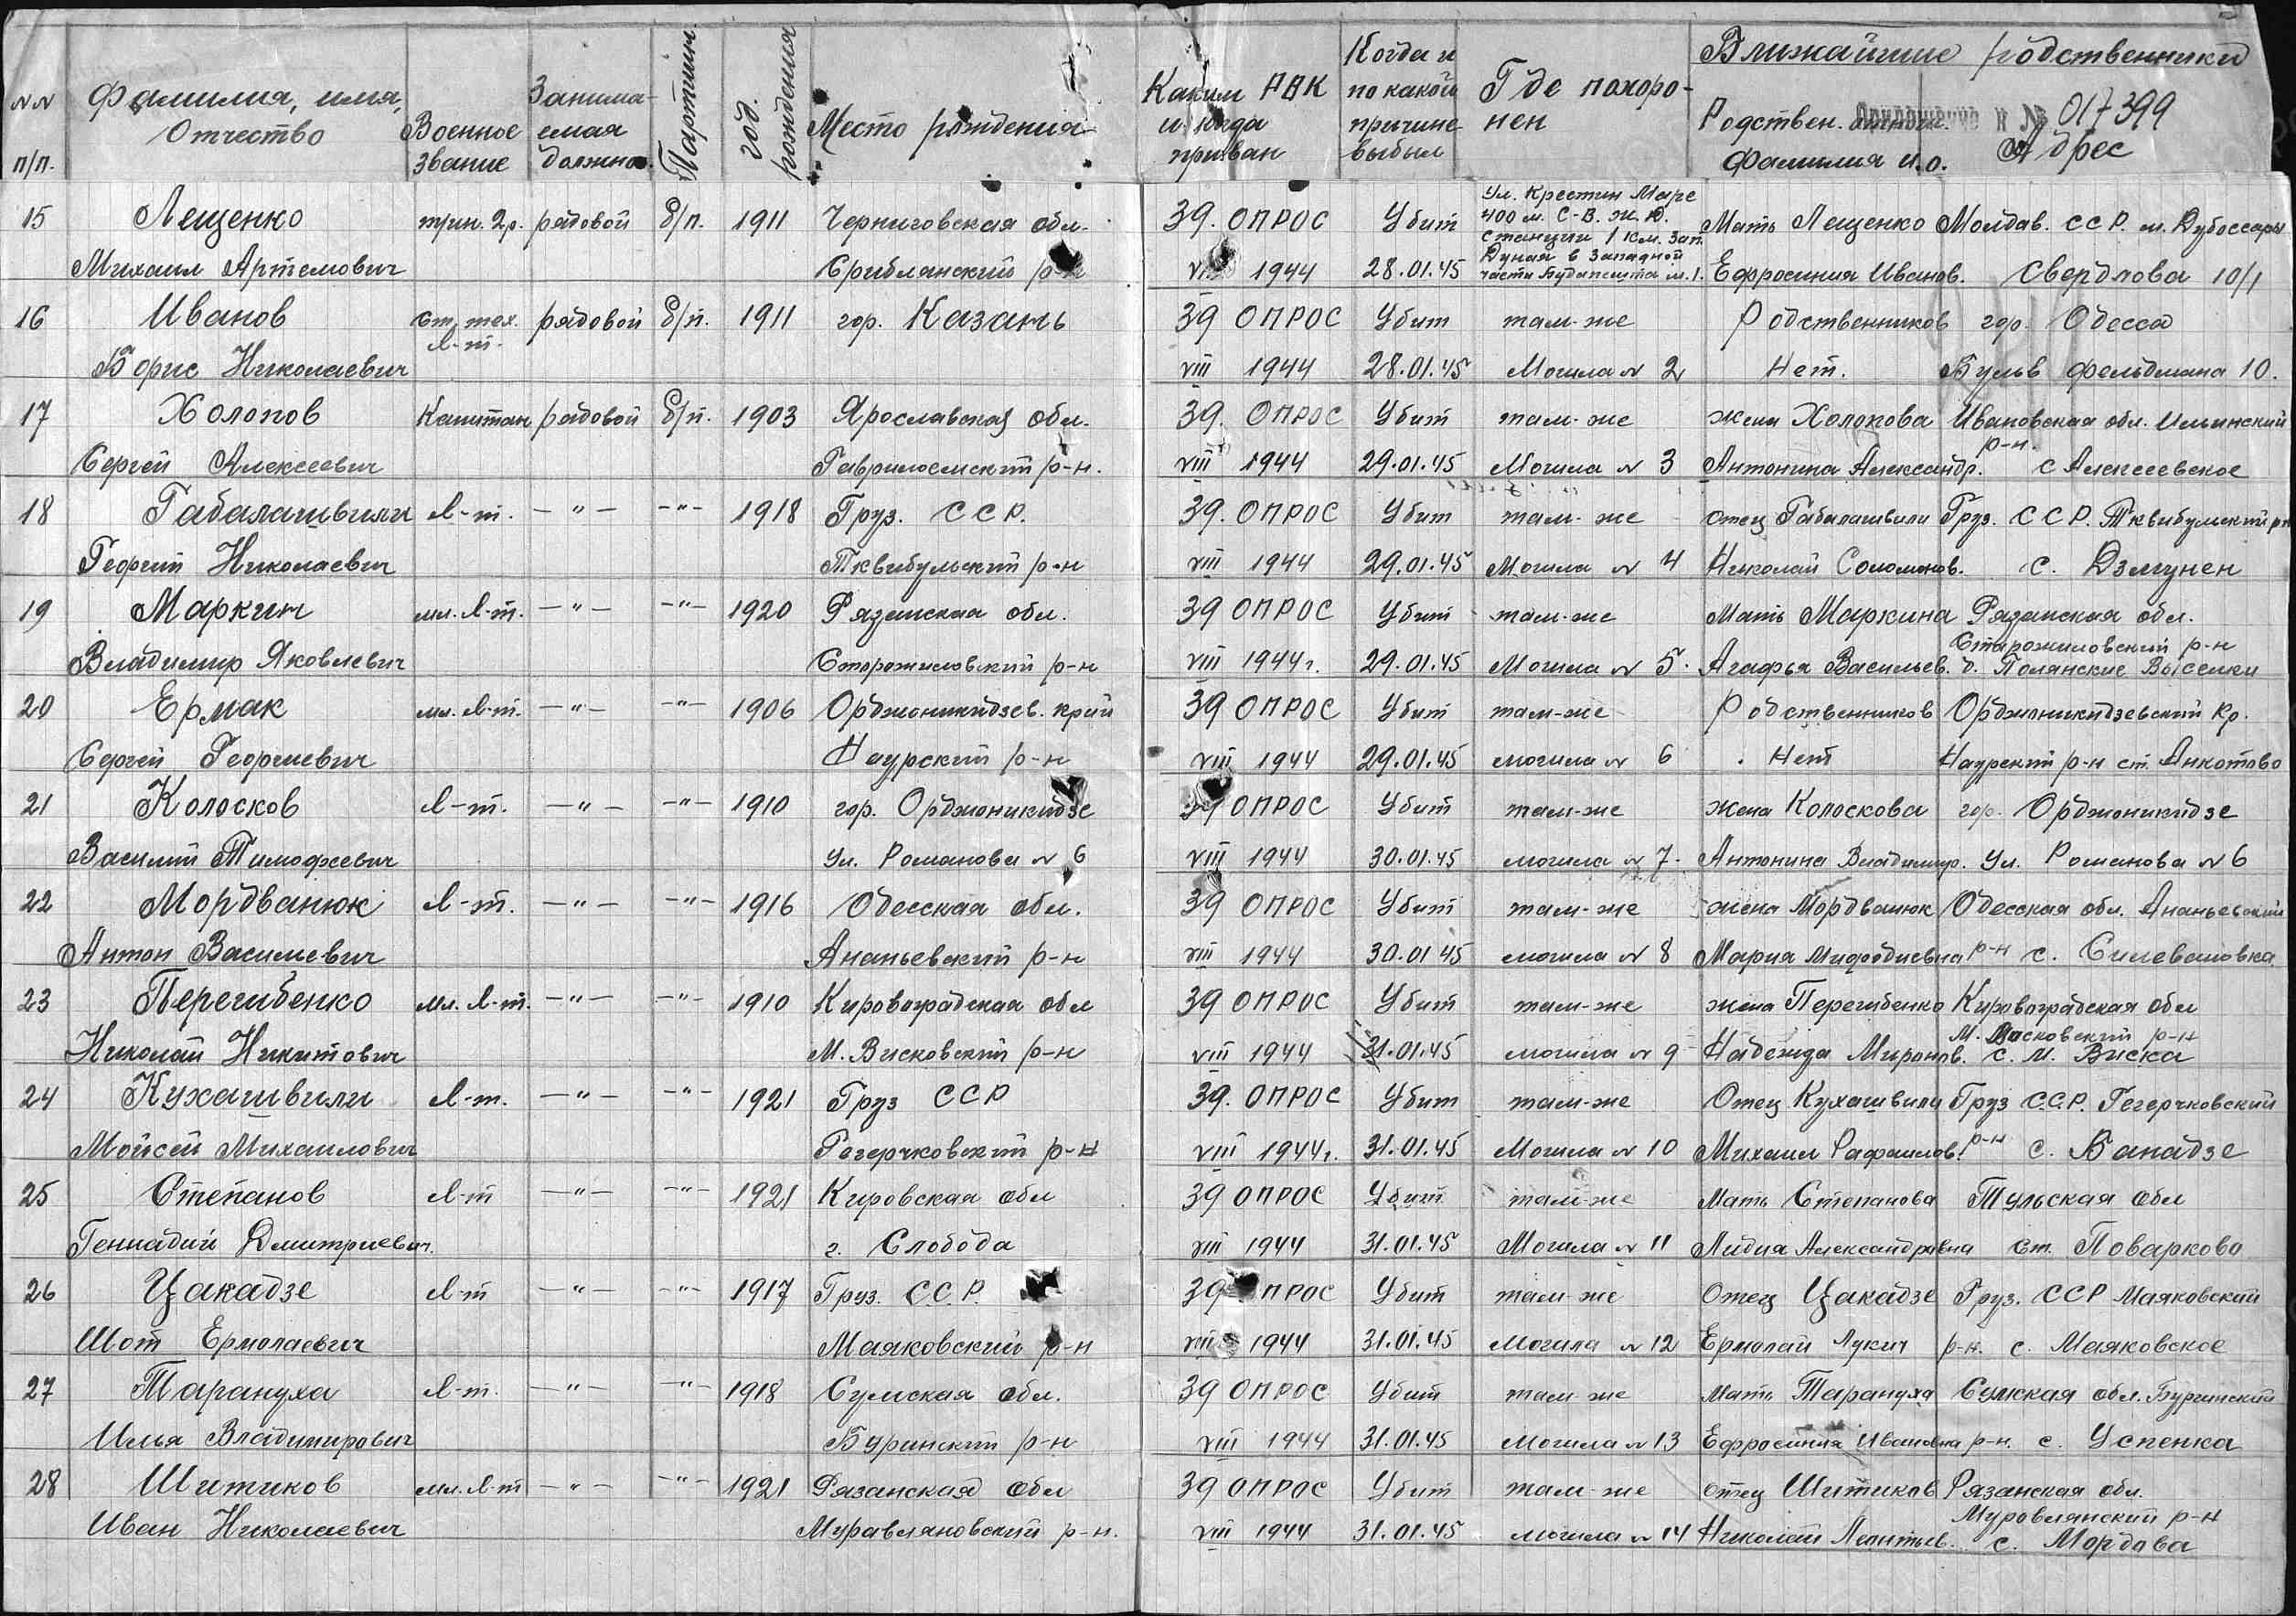 Ближайшие родственники
№№ п/п.
Фамилия, имя, Отчество
Военное звание
Занимаемая должнос.
Партийн.
год. рождения
Место рождения
Каким РВК и когда призван
Когда и по какой причине выбыл
Где похоронен
Родствен. отнош. фамилия и.о.
Адрес
№ 017399
15 Лещенко рядовой б/п. 1911 Черниговская обл. 39. ОПРОС Убит Ул. Крестин Маре 400 м. С-В. ж.д. станции 1 км. зап. Мать Лещенко Молдав. ССР. м. Дубоссары
Михаил Артемович Сриблянский р-н VIII 1944 28.01.45 Дуная в западной части Будапешта м. 1. Ефросиния Иванов. Свердлова 10/1
16 Иванов ст. тех. л-т. рядовой б/п. 1911 гор. Казань 39 ОПРОС Убит там-же Родственников гор. Одесса
Борис Николаевич VIII 1944 28.01.45 Могила № 2 Нет. Бульв Фельдмана 10.
17 Холопов Капитан рядовой б/п. 1903 Ярославская обл. 39. ОПРОС Убит там-же жена Холопова Ивановская обл. Ильинский р-н.
Сергей Алексеевич р-н. VIII 1944 29.01.45 Могила № 3 Антонина Александр. с Алексеевское
18 Габалашвили л-т. —"— —"— 1918 Груз. ССР. 39. ОПРОС Убит там-же отец Габалашвили Груз. ССР. Тквибульский рн
Георгий Николаевич Тквибульский р-н VIII 1944 29.01.45 Могила № 4 Николай Соломонов. с.
19 Маркин мл. л-т. —"— —"— 1920 Рязанская обл. 39 ОПРОС Убит там-же Мать Маркина Рязанская обл.
Владимир Яковлевич Сторожиловский р-н VIII 1944г. 29.01.45 Могила № 5. Агафья Васильев. Старожиловский р-н д. Полянские Выселки
20 Ермак мл. л-т. —"— —"— 1906 Орджоникидзев. край 39 ОПРОС Убит там-же Родственников Орджоникидзевский кр.
Сергей Георгиевич Наурский р-н VIII 1944 29.01.45 могила № 6 Нет Наурский р-н ст.
21 Колосков л-т. —"— —"— 1910 гор. Орджоникидзе 39 ОПРОС Убит там-же жена Колоскова гор. Орджоникидзе
Василий Тимофеевич ул. Романова № 6 VIII 1944 30.01.45 могила № 7. Антонина Владимир. ул. Романова № 6
22 Мордванюк л-т. —"— —"— 1916 Одесская обл. 39 ОПРОС Убит там-же жена Мордванюк Одесская обл. Ананьевский
Антон Васильевич Ананьевский р-н VIII 1944 30.01 45 могила № 8 Мария Мифодиевна р-н с.
23 Перегибенко мл. л-т. —"— —"— 1910 Кировоградская обл 39 ОПРОС Убит там-же жена Перегибенко Кировоградская обл
Николай Никитович М. Висковский р-н VIII 1944 31.01.45 могила № 9 Надежда Миронов. М. Висковский р-н с. М. Виска
24 Кухашвили л-т. —"— —"— 1921 Груз ССР 39. ОПРОС Убит там-же Отец Кухашвили Груз С.С.Р. Гегечковский
Мойсей Михаилович Гегечковский р-н VIII 1944г. 31.01.45 Могила № 10 Михаил Рафаилов. р-н с. Банадзе
25 Степанов л-т —"— —"— 1921 Кировская обл 39 ОПРОС Убит там-же Мать Степанова Тульская обл
Геннадий Дмитриевич. г. Слобода VIII 1944 31.01.45 Могила № 11 Лидия Александровна ст. Поварково
26 Цакадзе л-т —"— —"— 1917 Груз. С.С.Р. 39 ОПРОС Убит там-же Отец Цакадзе Груз. ССР Маяковский
Шот Ермолаевич Маяковский р-н VIII 1944 31.01.45 Могила № 12 Ермолай Лукич р-н. с. Маяковское
27 Тарануха л-т. —"— —"— 1918 Сумская обл. 39 ОПРОС Убит там же Мать Тарануха Сумская обл. Буринский
Илья Владимирович Буринский р-н VIII 1944 31.01.45 Могила № 13 Ефросиния Ивановна р-н. с. Успенка
28 Шитиков мл. л-т —"— —"— 1921 Рязанская обл 39 ОПРОС Убит там-же отец Шитиков Рязанская обл.
Иван Николаевич Муравляновский р-н. VIII 1944 31.01.45 могила № 14 Николай Леонтьев. Муровлянский р-н с. Мордова